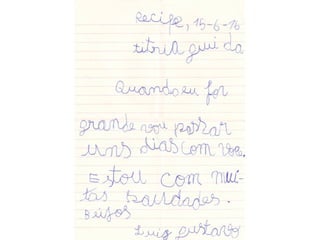 Recife, 15-6-76
titria gui da
Quando eu for
grande vou passar
uns dias com voce.
Estou com mui-
tas saudades.
Beijos
Luiz Gustavo